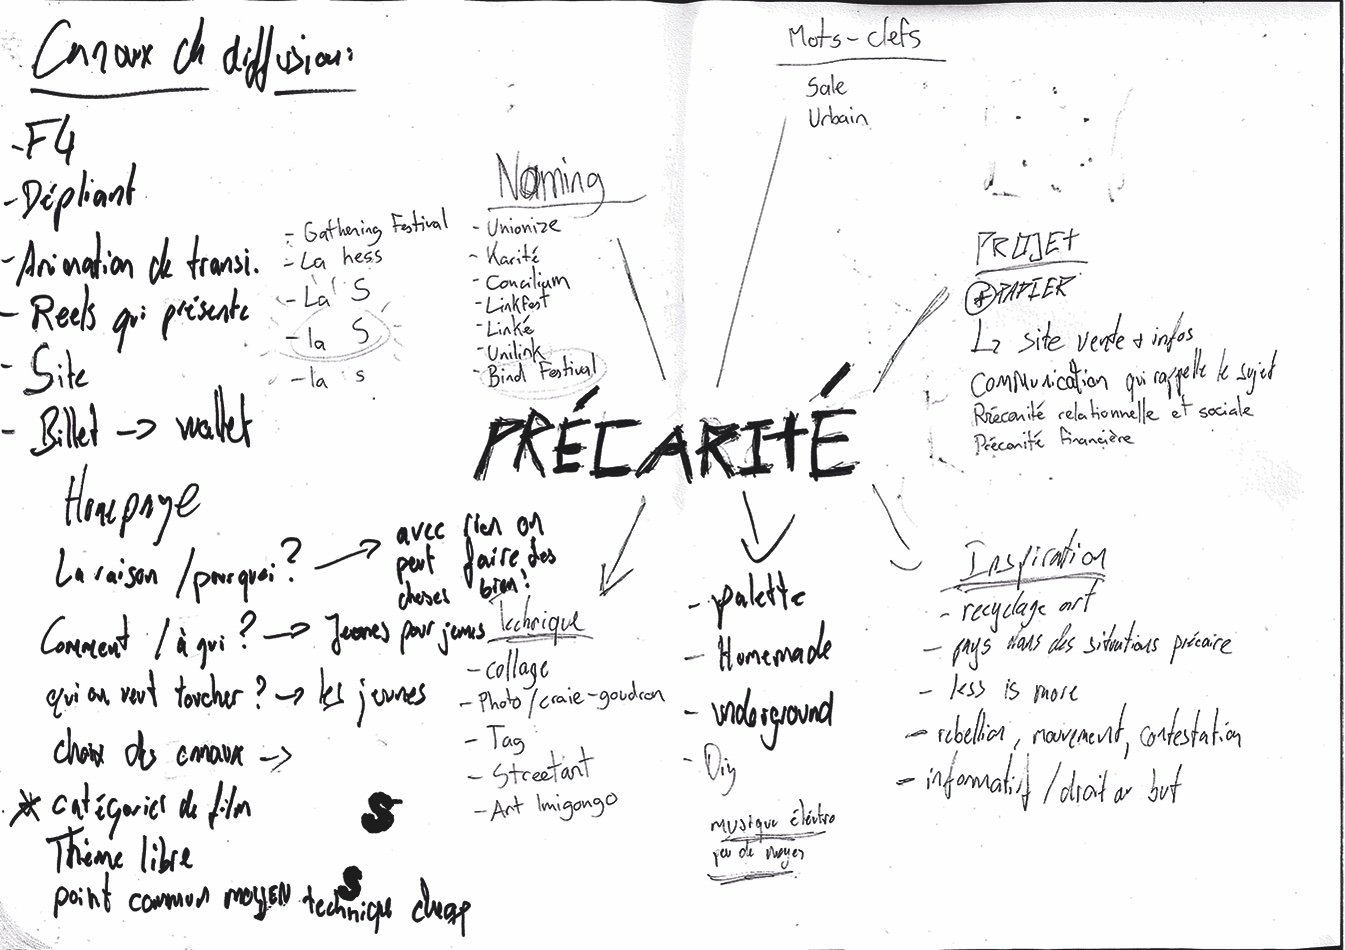 Canaux de diffusion:
- F4
- Dépliant
- Animation de transi.
- Reels qui présente
- Site
- Billet -> wallet
Homepage
La raison / pourquoi? -> avec rien on
peut faire des
choses bien!
Comment / à qui? -> Jeunes pour jeunes
qui on veut toucher? -> les jeunes
choix des canaux ->
* catégories de film
Thème libre
point commun moyen technique cheap
S
S
- Gathering Festival
- La hess
- La S
- la S
- la s
Naming
- Unionize
- Karité
- Concilium
- Linkfest
- Linké
- Unilink
- Bind Festival
Mots-clefs
Sale
Urbain
PROJET
+ PAPIER
L> site vente + infos
communication qui rappelle le sujet
Précarité relationnelle et sociale
Précarité financière
PRÉCARITÉ
Technique
- collage
- Photo/craie-goudron
- Tag
- Streetart
- Art Imigongo
- palette
- Homemade
- underground
- Diy
musique éléctro
peu de moyen
Inspiration
- recyclage art
- pays dans des situations précaire
- less is more
- rebellion, mouvement, contestation
- informatif / droit au but